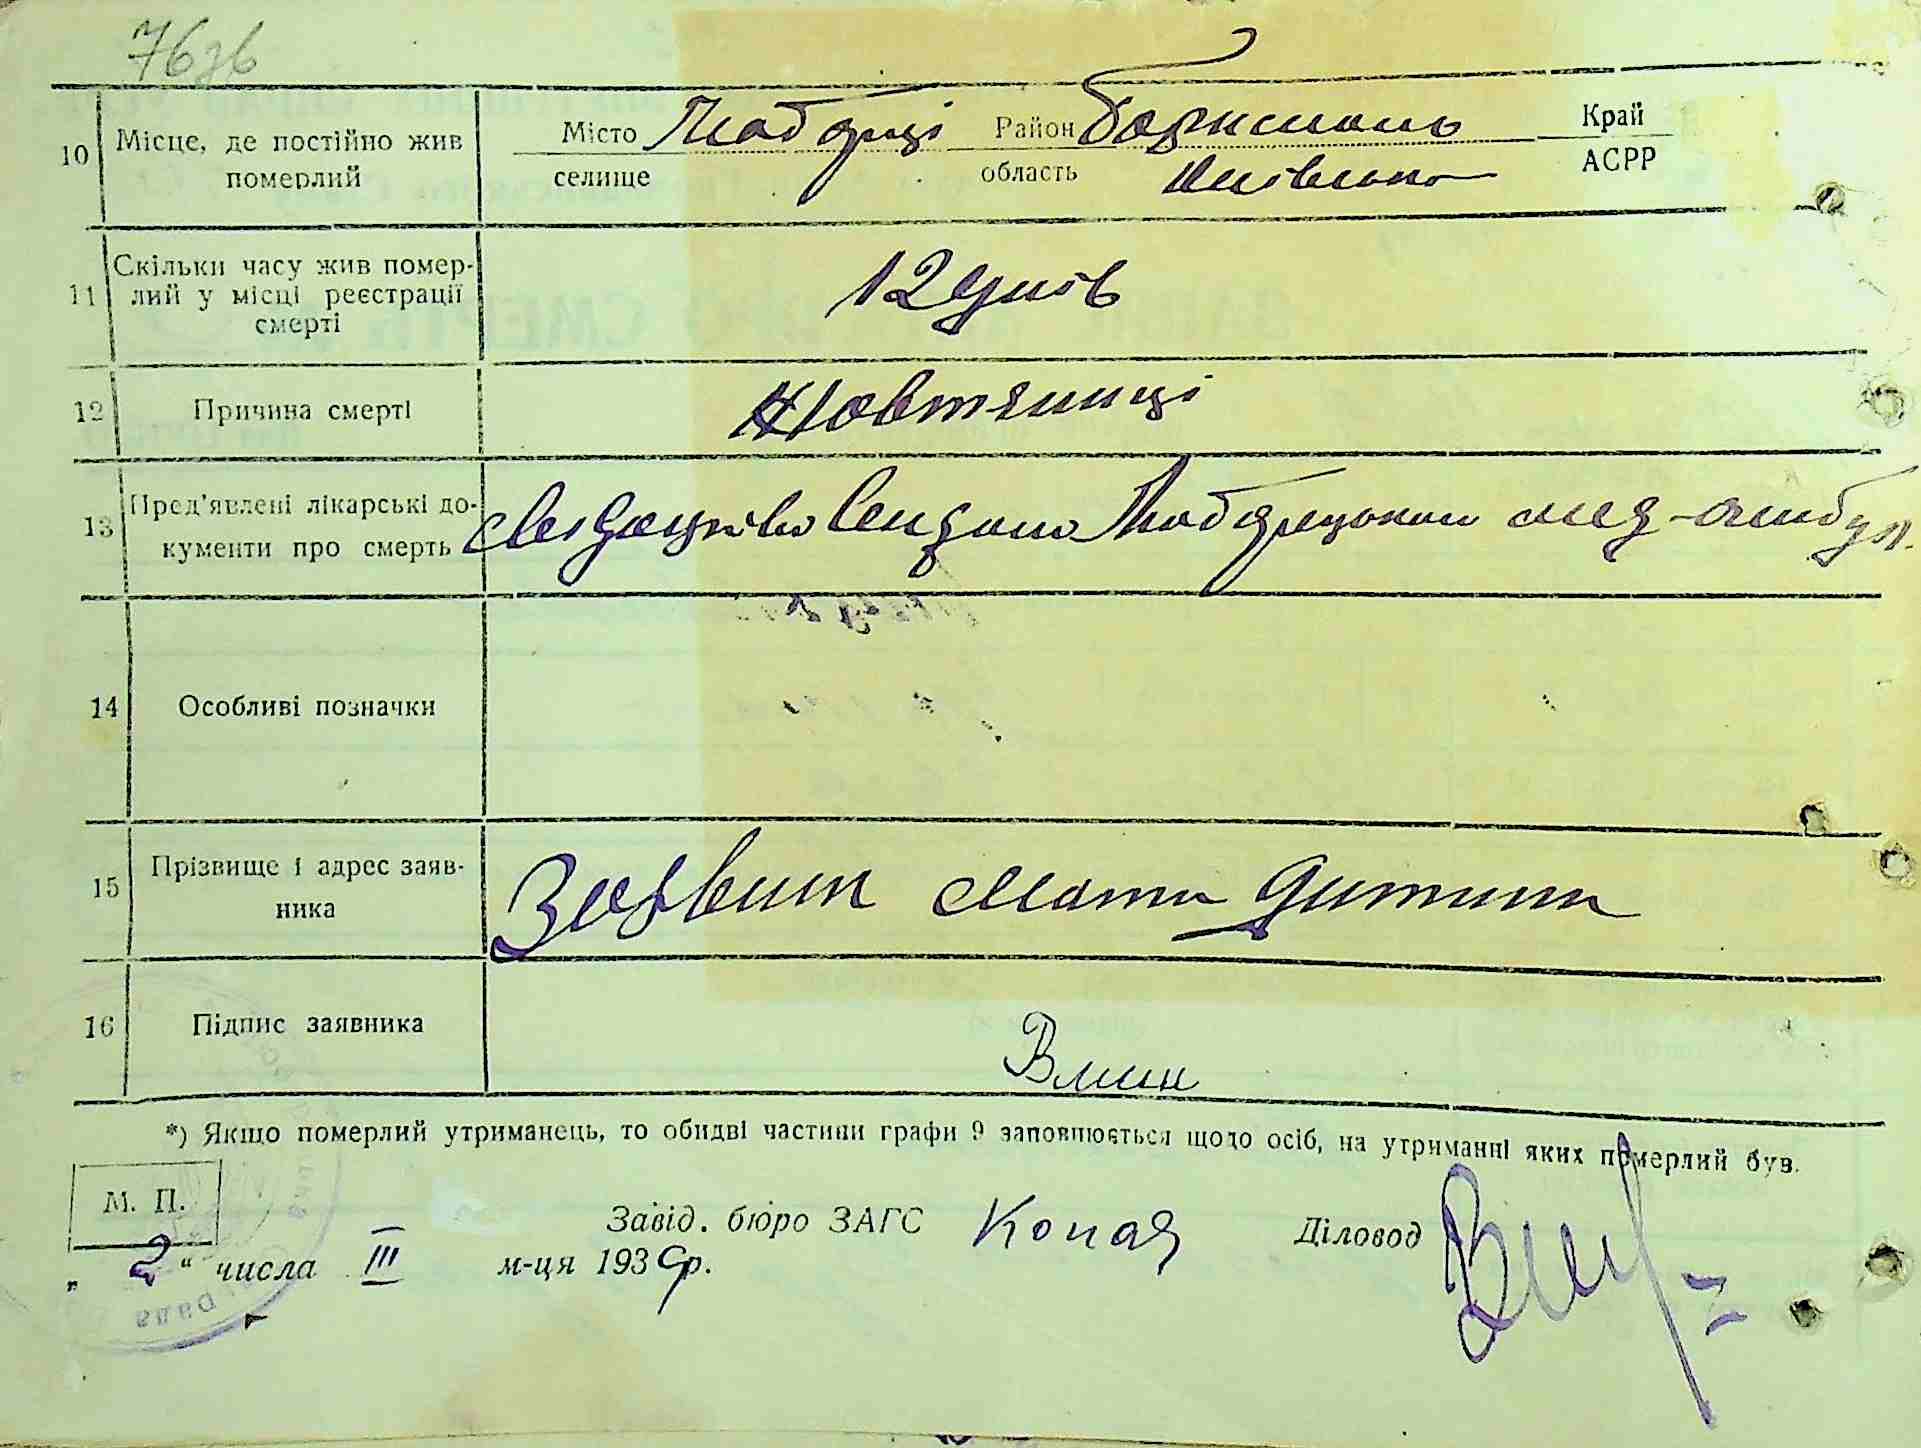 76зв
10 Місце, де постійно жив померлий
Місто селище Район Бориспаль область Київська Край АСРР
11 Скільки часу жив померлий у місці реєстрації смерті
12 днів
12 Причина смерті
Жовтяниці
13 Пред'явлені лікарські документи про смерть
мед-амбул.
14 Особливі позначки
15 Прізвище і адрес заявника
Заявит Мати дитини
16 Підпис заявника
*) Якщо померлий утриманець, то обидві частини графи 9 заповнюється щодо осіб, на утриманні яких померлий був.
М. П.
Завід. бюро ЗАГС Копая Діловод
„ 2 “ числа III м-ця 193 р.